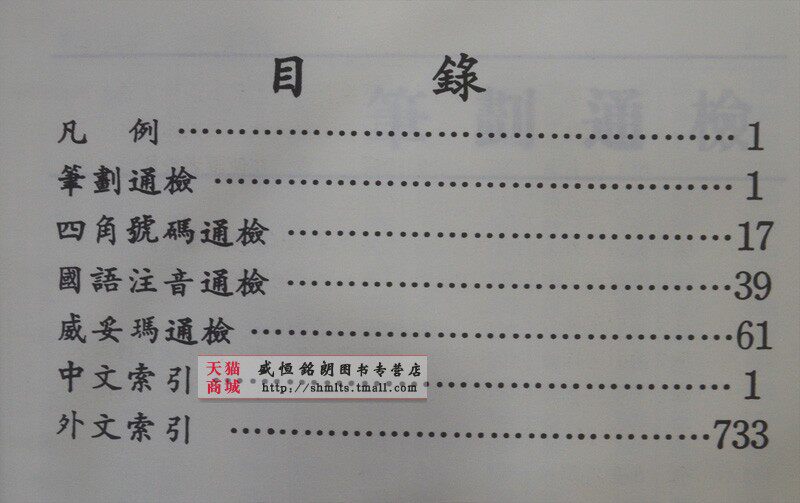 目 錄
凡 例 ……………………………………………… 1
筆劃通檢 ……………………………………………… 1
四角號碼通檢 ……………………………………………… 17
國語注音通檢 ……………………………………………… 39
威妥瑪通檢 ……………………………………………… 61
中文索引 ……………………………………………… 1
天猫商城 盛恒铭朗图书专营店
http://shmlts.tmall.com
外文索引 ……………………………………………… 733
筆劃通檢